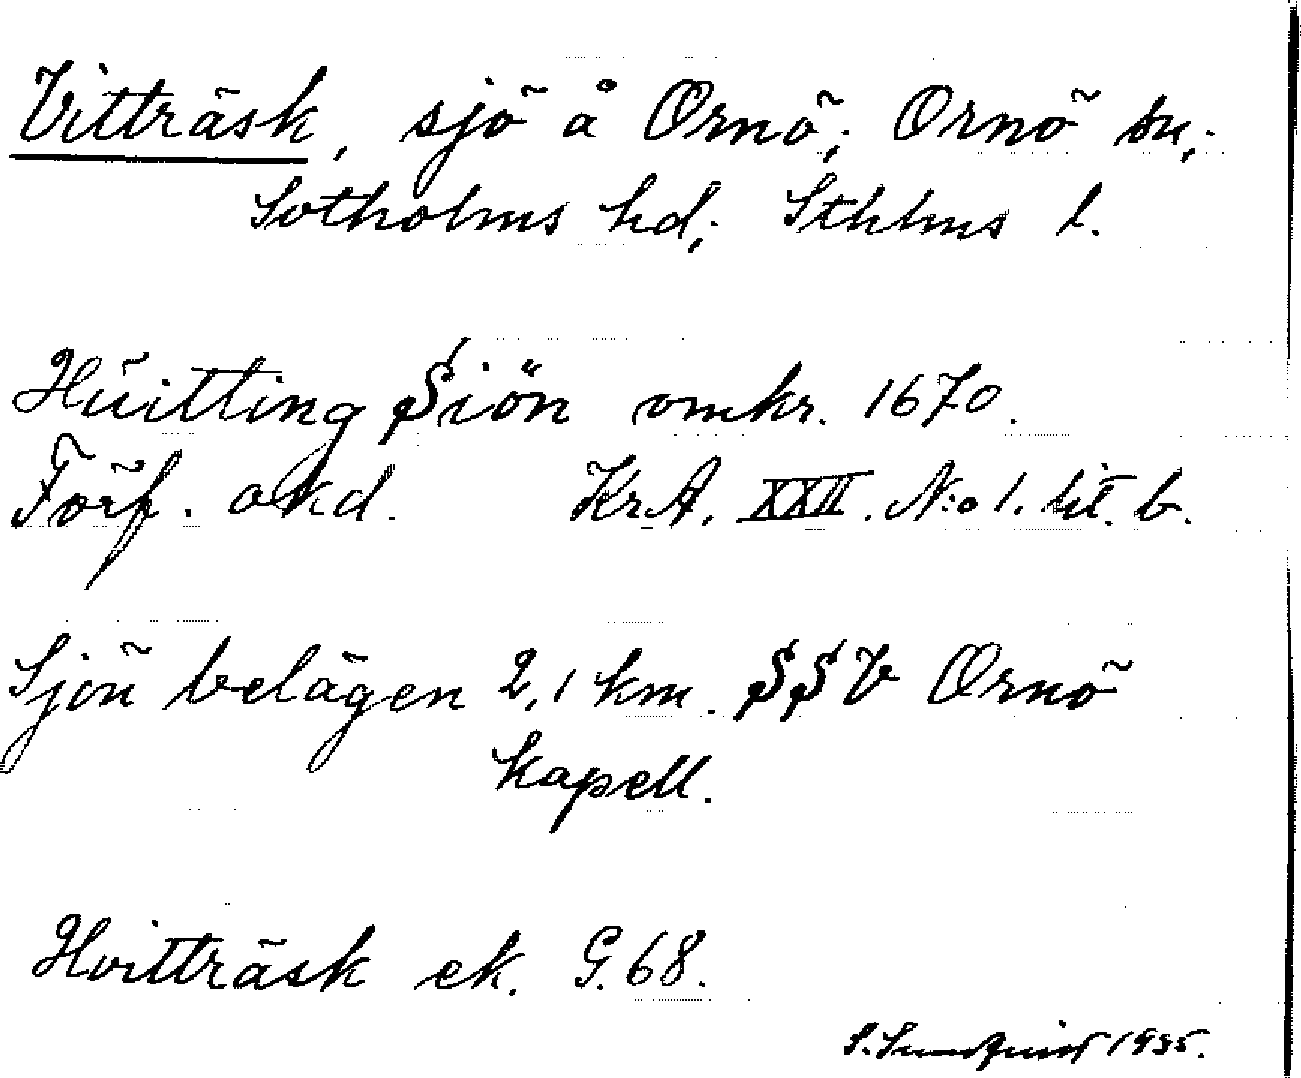 Vitträsk, sjö å Ornö; Ornö sn;
Sotholms hd; Sthlms l.
Huitting Siön omkr. 1670.
Förf. okd. KrA. XXII. N:o 1. lit. b.
Sjön belägen 2,1 km. SSV Ornö
kapell.
Hvitträsk ek. G. 68.
S. Sundquist 1935.